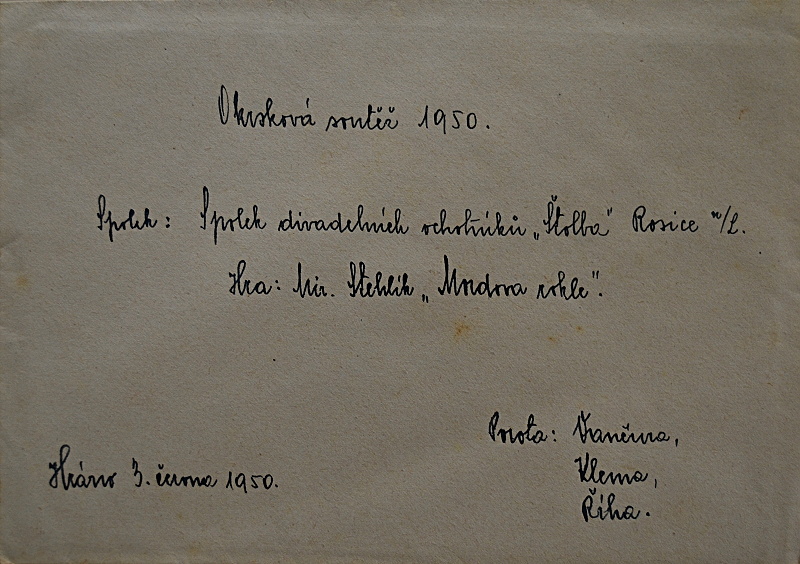 Okrsková soutěž 1950.
Spolek: Spolek divadelních ochotníků „Štolba" Rosice n/L.
Hra: Mir. Stehlík „Mordova rokle".
Porota: Vančura,
Hráno 3. června 1950.
Klema,
Říha.